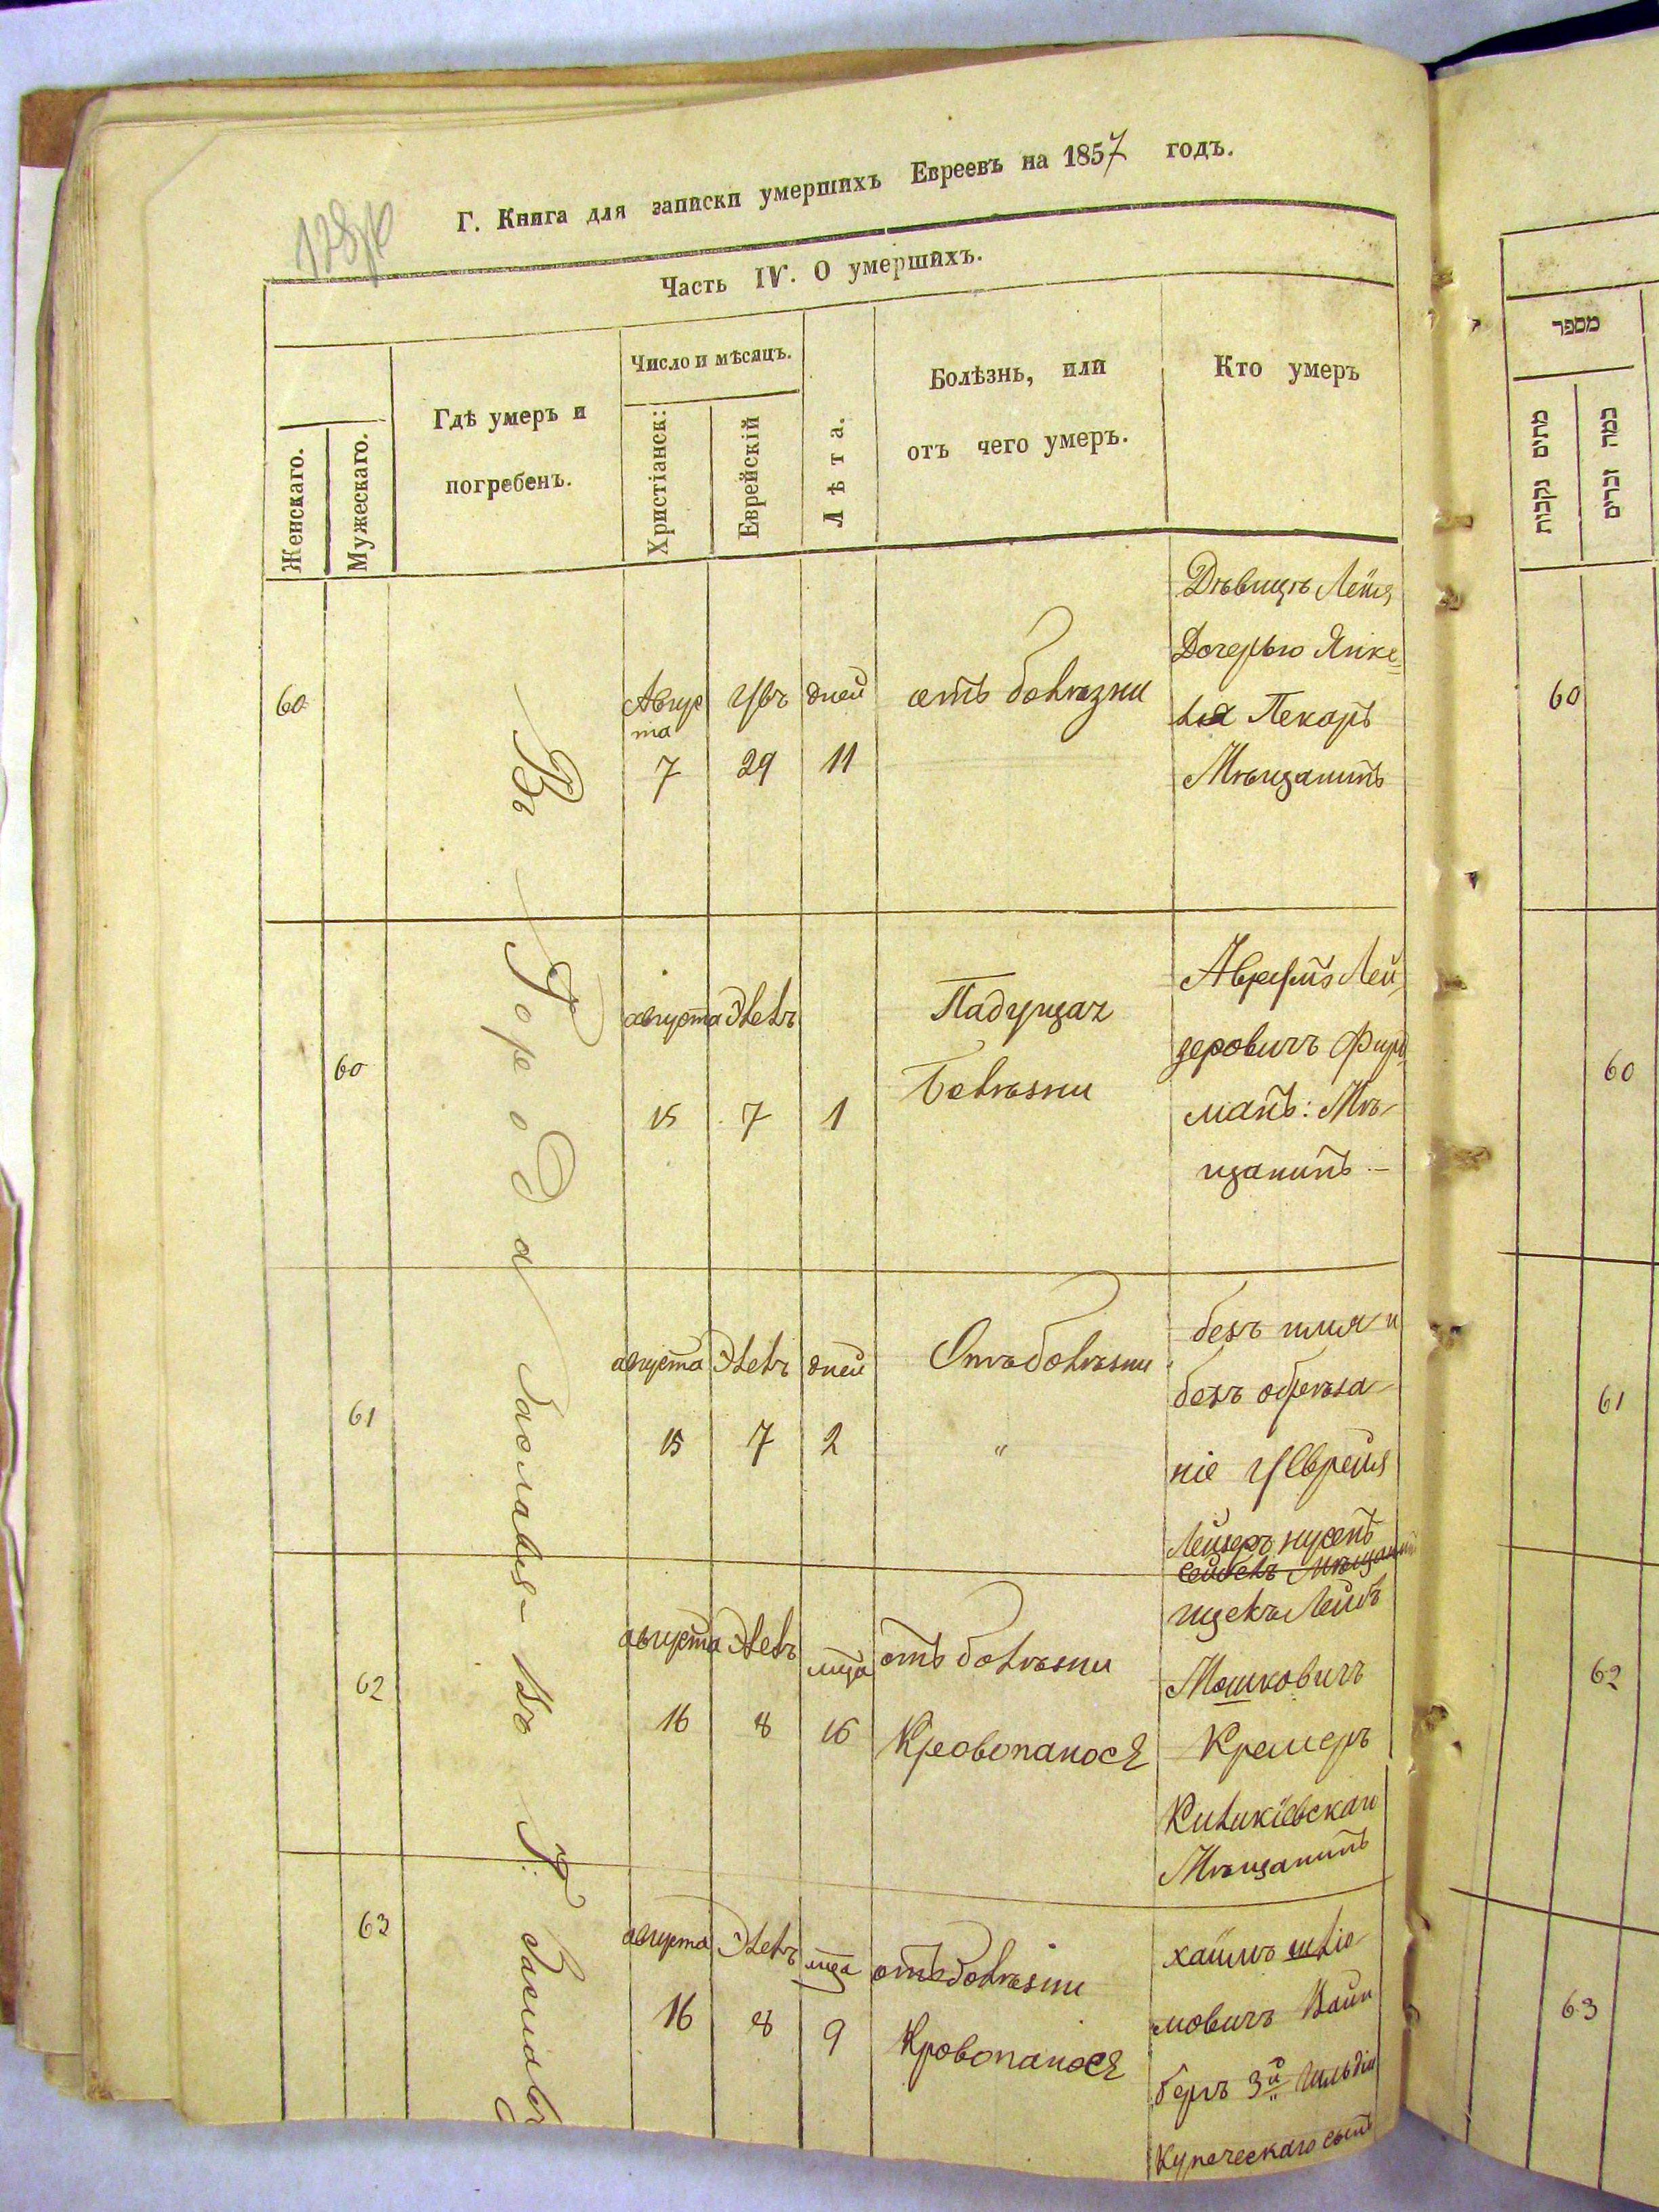 128
Г. Книга для записки умершихъ Евреевъ на 1857 годъ.
Часть IV. О умершихъ.
Женскаго.
Мужескаго.
Гдѣ умеръ и
погребенъ.
Число и мѣсяцъ.
Христіанск:
Еврейскій
Лѣта.
Болѣзнь, или
отъ чего умеръ.
Кто умеръ
Въ Города Заславля- въ Г. Заславѣ
60
Авгус
та
7
Увъ
29
дней
11
отъ болѣзни
Дѣвицъ Лейя
Дочерью Янке=
ля Пекаръ
Мѣщанинъ
60
августа
15
Элелъ
7
1
Падущач
Болѣзни
Аврумъ Лей
зеровичъ Фур
манъ: Мѣ-
щанинъ -
61
августа
15
Элелъ
7
дней
2
Отъ болѣзни
"
безъ имя и
безъ обрѣза-
ніе У Еврейя
Лейзеръ нусенъ
62
августа
16
Элелъ
8
мца
16
отъ болѣзни
Кровопаноса
ицекъ Лейбъ
Мошковичъ
Крамеръ
Киликіевскаи
Мѣщанинъ
63
августа
16
Элелъ
8
мца
9
отъ болѣзни
Кровопаноса
хаимъ шліо
мовичъ Вайн
бергъ 3й Гильдіи
Купеческаго сынъ
מספר
מתים נקבות
כמה זכרים
60
60
61
62
63